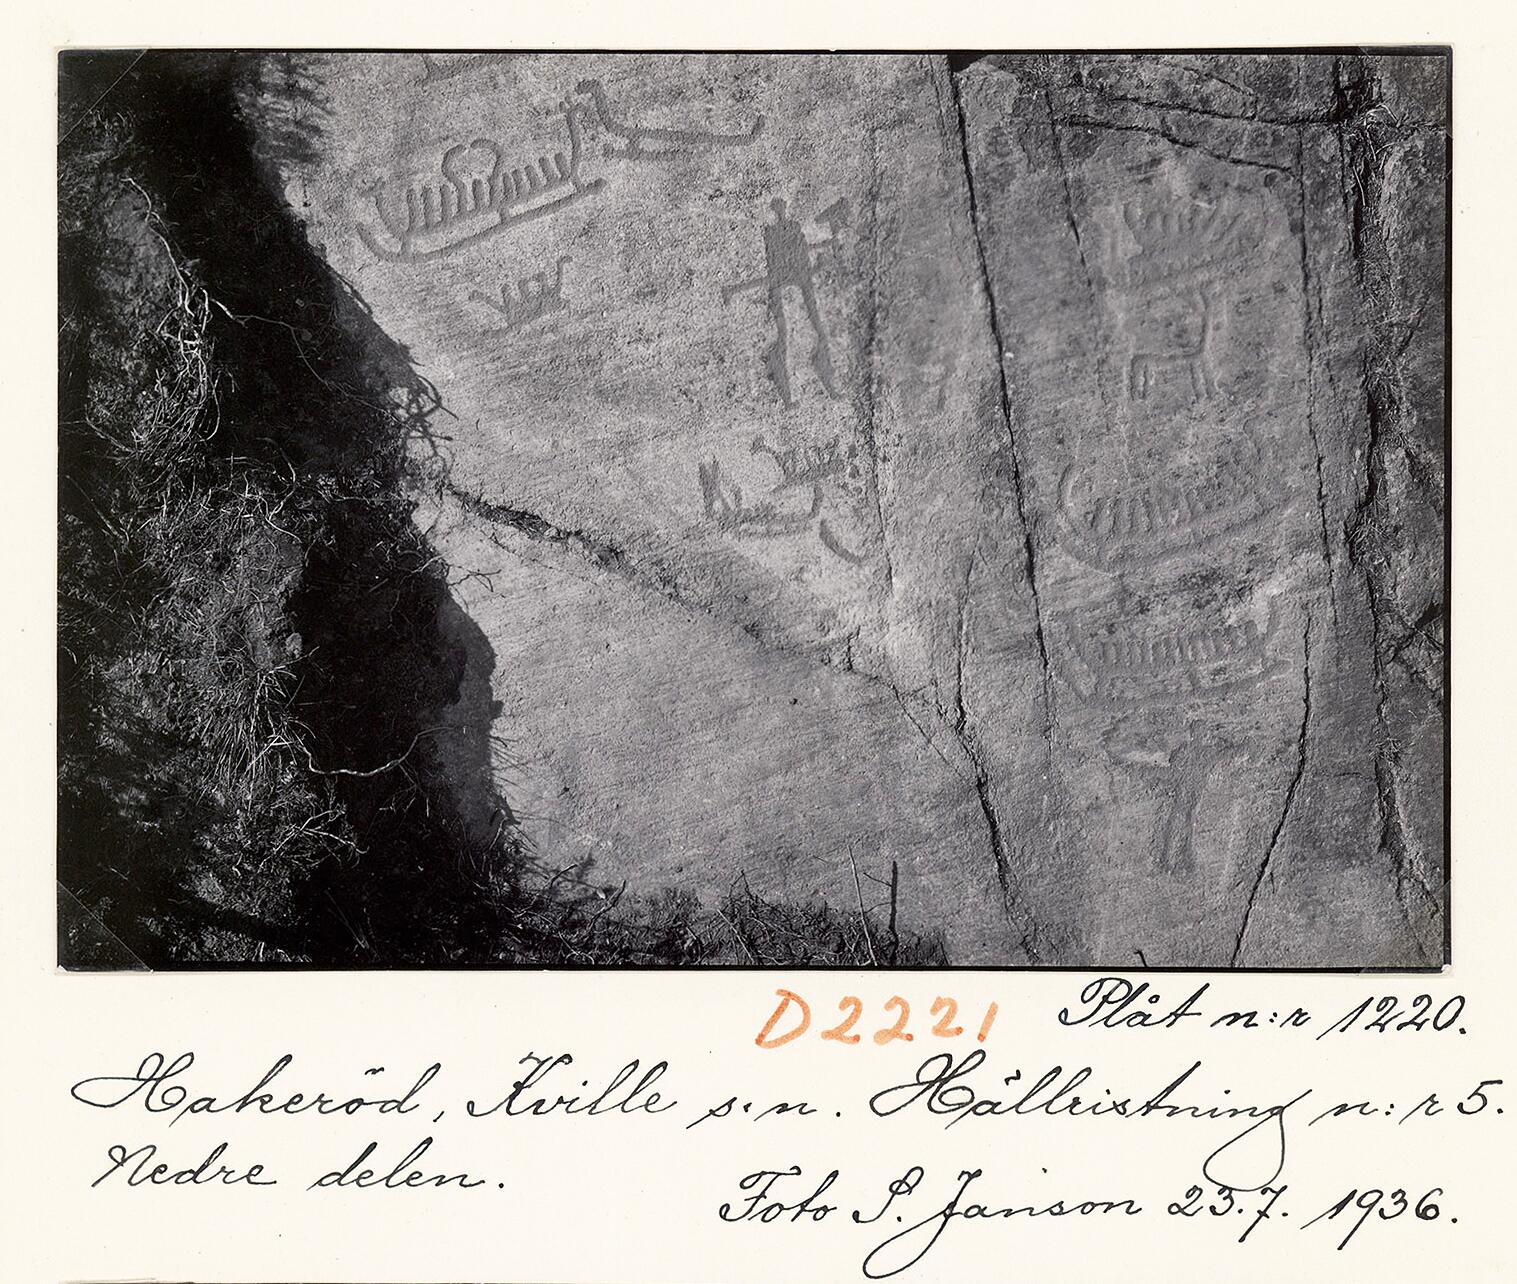 D2221 Plåt n:r 1220.
Hakeröd, Kville s:n. Hällristning n:r 5.
Nedre delen.
Foto S. Janson 23.7. 1936.